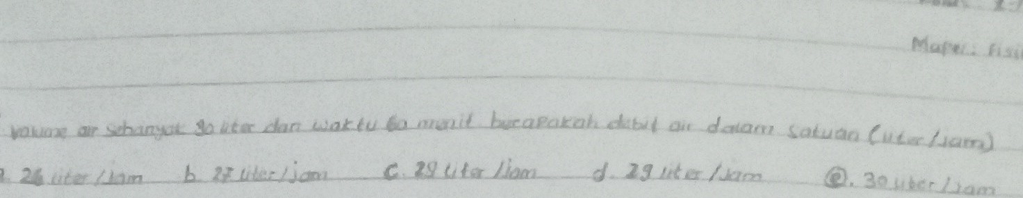 Mapel: Fisi
volume air sebanyak 30 liter dan waktu 60 menit berapakah debit air dalam satuan (liter/jam)
a. 26 liter/jam b. 27 liter/jam c. 29 liter/jam d. 29 liter/jam e. 30 liter/jam